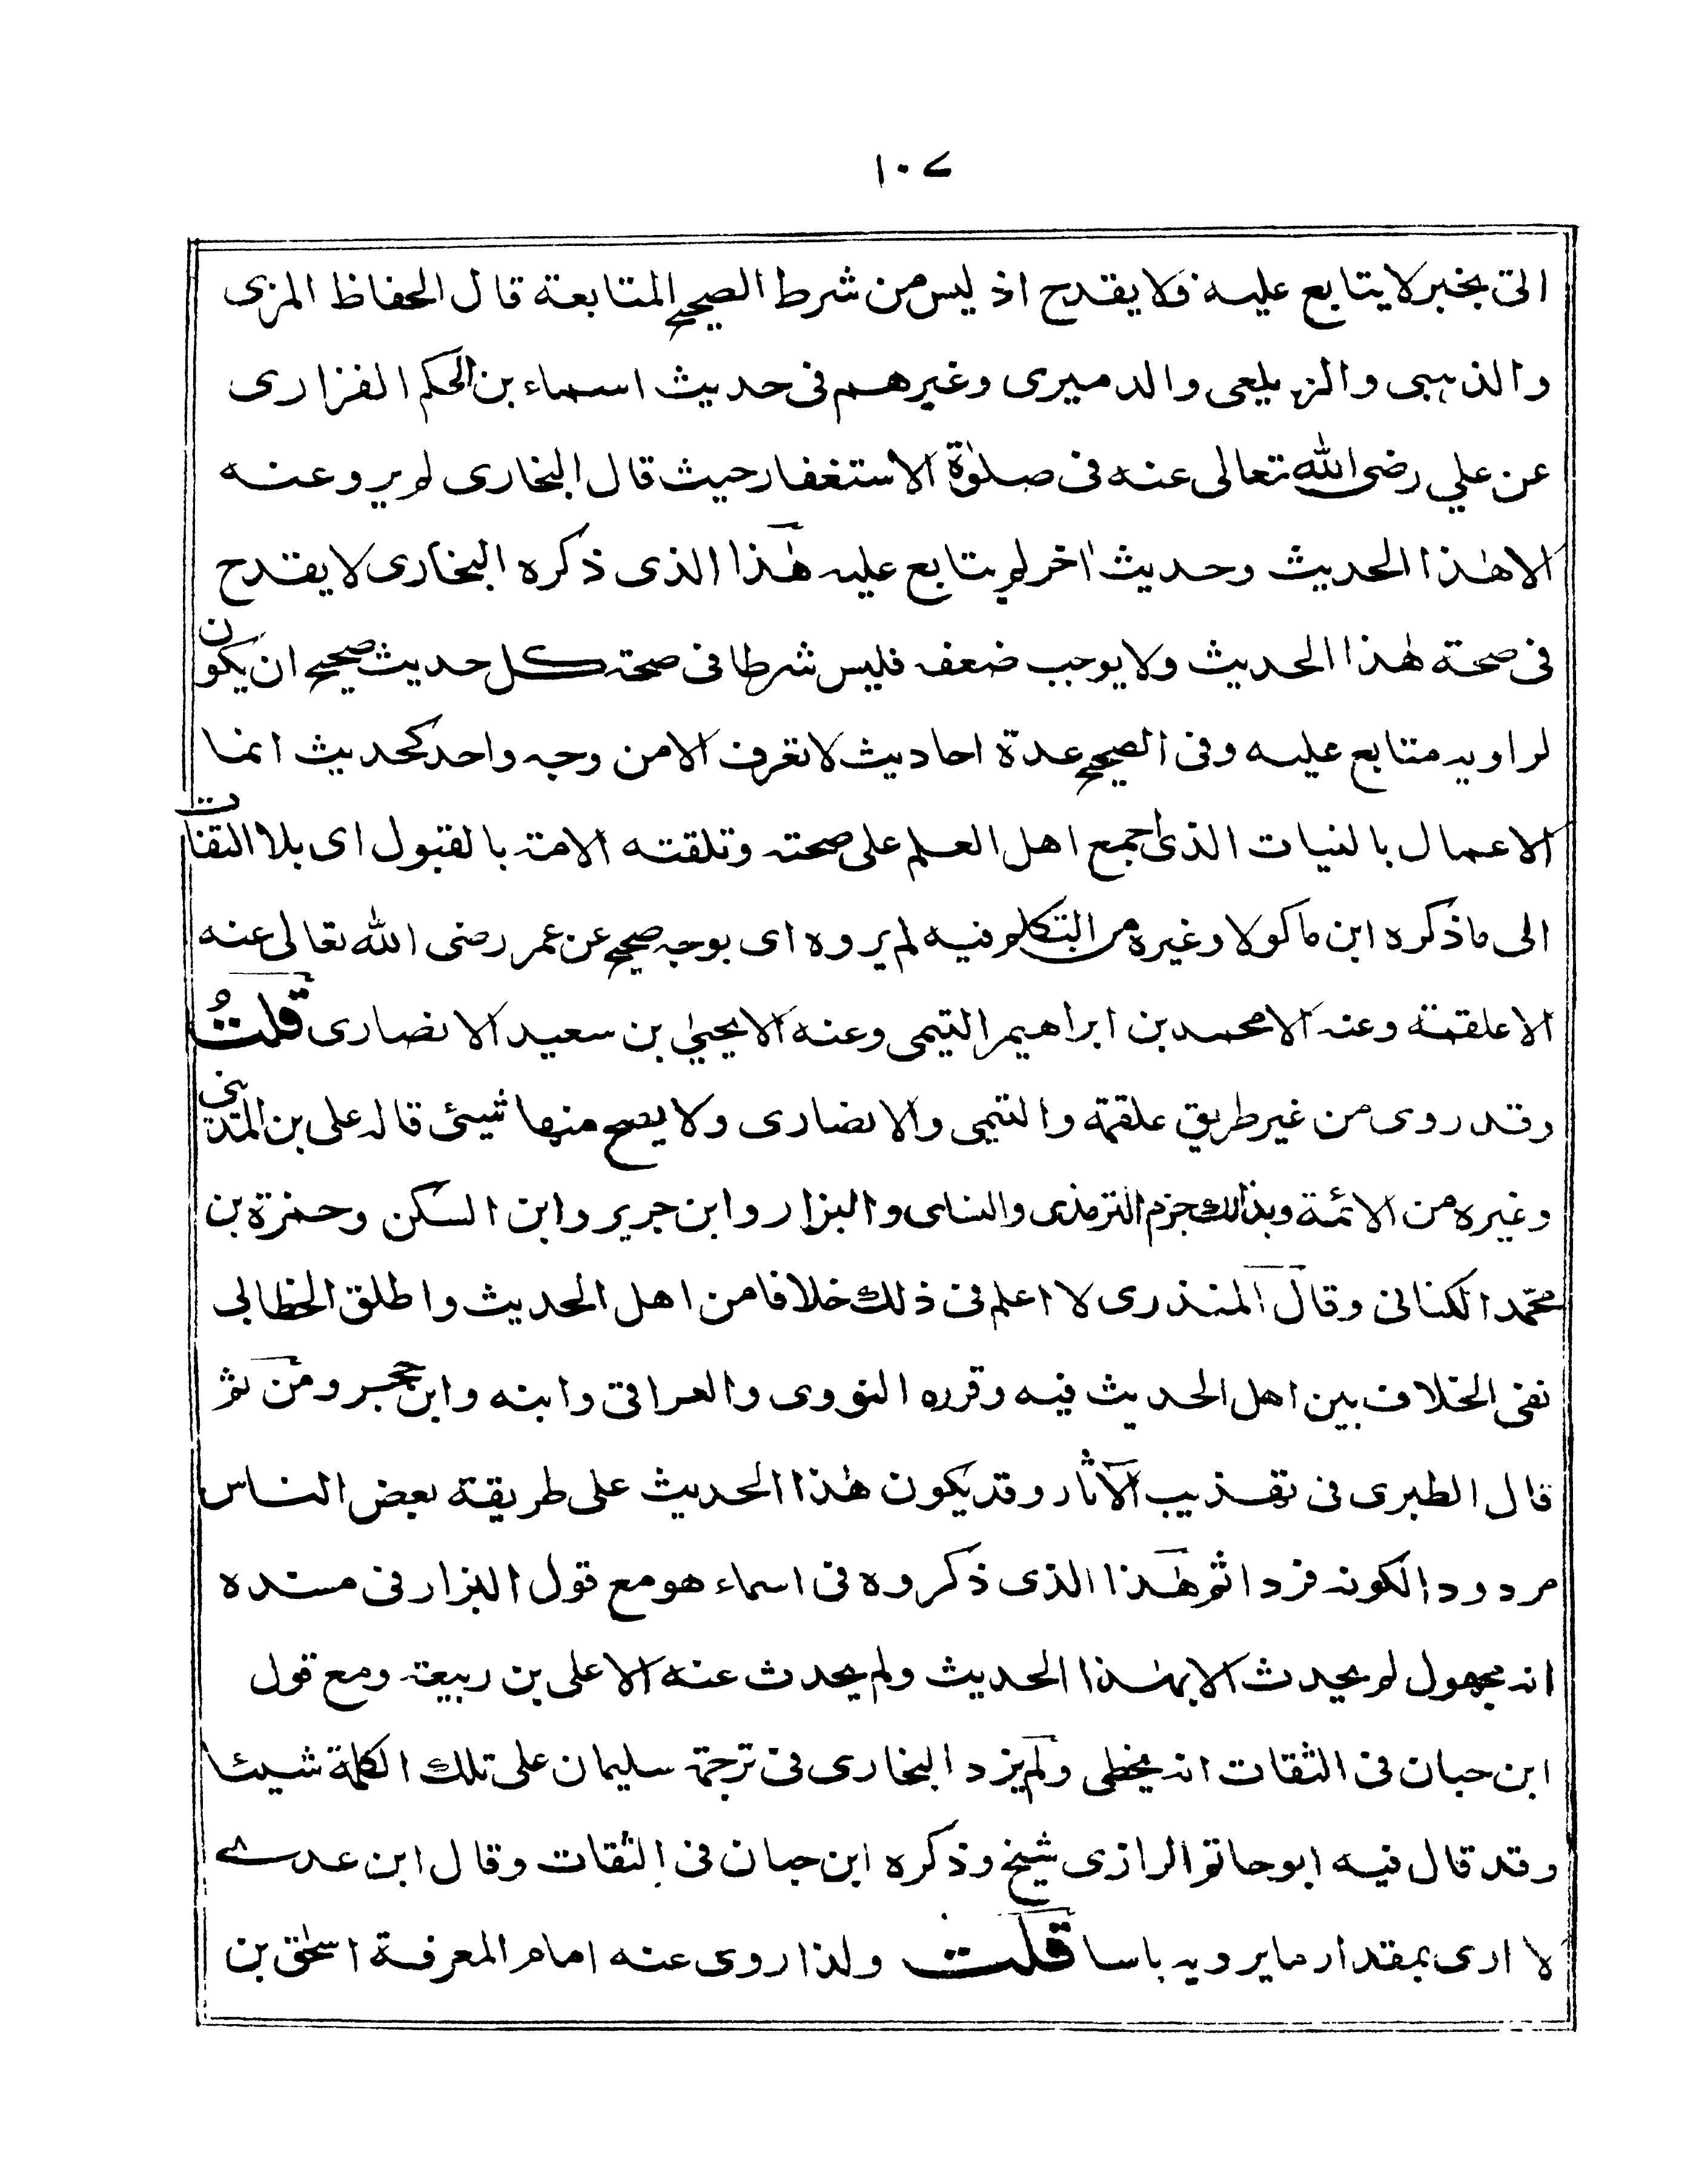 ١٠٧
التى بخبر لا يتابع عليه فلا يقدح اذ ليس من شرط الصحيح المتابعة قال الحفاظ المزى
والذهبى والزيلعى والدميرى وغيرهم فى حديث اسماء بن الحكم الفزارى
عن علي رضى الله تعالى عنه فى صلوٰة الاستغفار حيث قال البخارى لم يرو عنه
الا هٰذا الحديث وحديث اٰخر لم يتابع عليه هٰذا الذى ذكره البخارى لا يقدح
فى صحة هٰذا الحديث ولا يوجب ضعفه فليس شرطا فى صحة كل حديث صحيح ان يكون
لراويه متابع عليه وفى الصحيح عدة احاديث لا تعرف الا من وجه واحد كحديث انما
الاعمال بالنيات الذى اجمع اهل العلم على صحته وتلقته الامة بالقبول اى بلا التفات
الى ما ذكره ابن ماكولا وغيره من التكلم فيه لم يروه اى بوجه صحيح عن عمر رضى الله تعالى عنه
الا علقمة وعنه الا محمد بن ابراهيم التيمى وعنه الا يحيىٰ بن سعيد الانصارى قلتُ
وقد روى من غير طريق علقمة والتيمى والانصارى ولا يصح منها شيئ قاله على بن المدينى
وغيره من الائمة وبذالك جزم الترمذى والنساى والبزار وابن جرير وابن السكن وحمزة بن
محمد الكنانى وقال المنذرى لا اعلم فى ذلك خلافا من اهل الحديث واطلق الخطابى
نفى الخلاف بين اهل الحديث فيه وقرره النووى والعراقى وابنه وابن حجر ومن ثم
قال الطبرى فى تهذيب الآثار وقد يكون هٰذا الحديث على طريقة بعض الناس
مردودا لكونه فردا ثم هٰذا الذى ذكروه فى اسماء هو مع قول البزار فى مسنده
انه مجهول لم يحدث الا بهٰذا الحديث ولم يحدث عنه الا على بن ربيعة ومع قول
ابن حبان فى الثقات انه يخطى ولم يزد البخارى فى ترجمة سليمان على تلك الكلمة شيئا
وقد قال فيه ابو حاتم الرازى شيخ وذكره ابن حبان فى الثقات وقال ابن عدے
لا ارى بمقدار ما يرويه باسا قلت ولذا روى عنه امام المعرفة اسحٰق بن